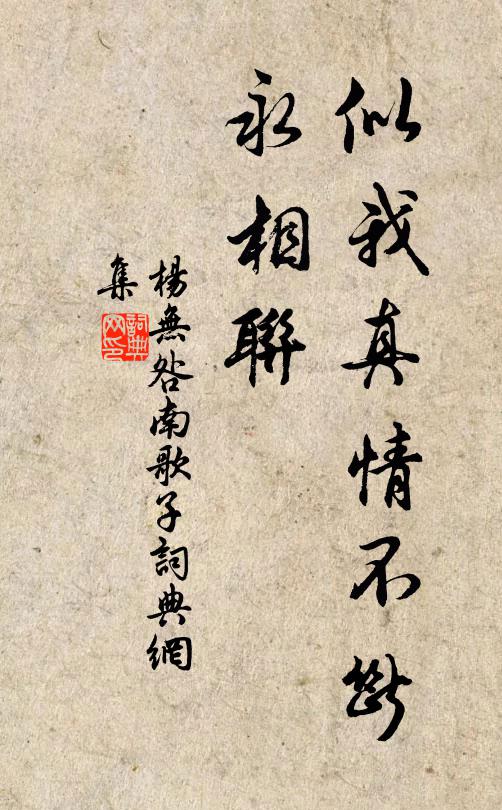 似我真情不斷
永相聯
楊無咎南歌子詞典網
集
詞典
网印